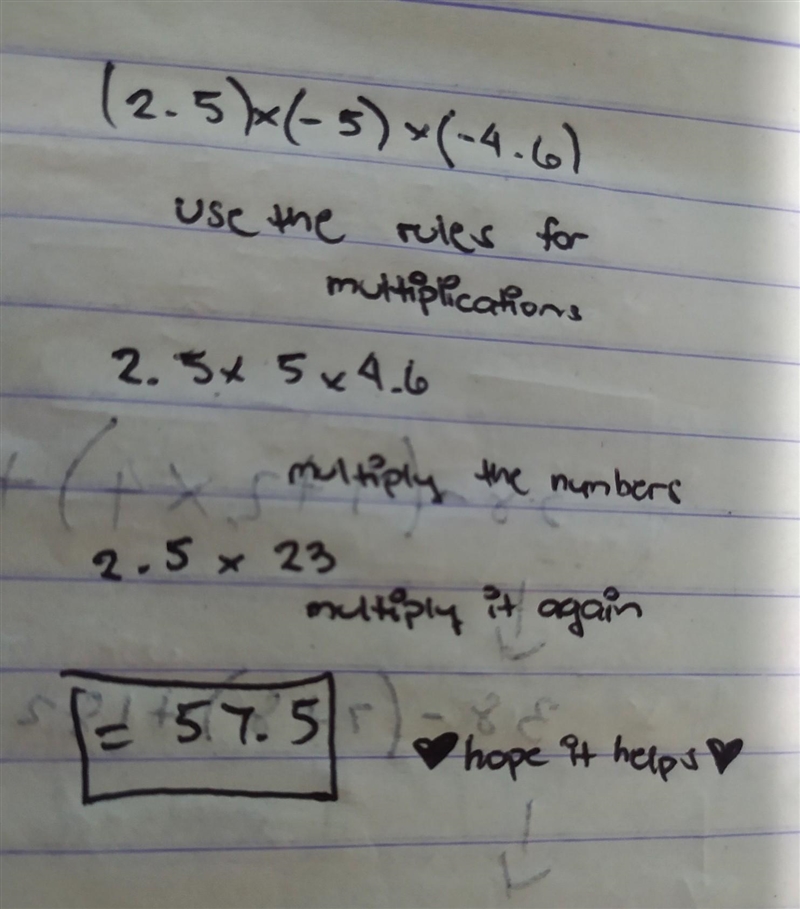 (2.5)×(-5)×(-4.6)
use the rules for
multiplications
2.5× 5 ×4.6
multiply the numbers
2.5 × 23
multiply it again
= 57.5
♥ hope it helps ♥